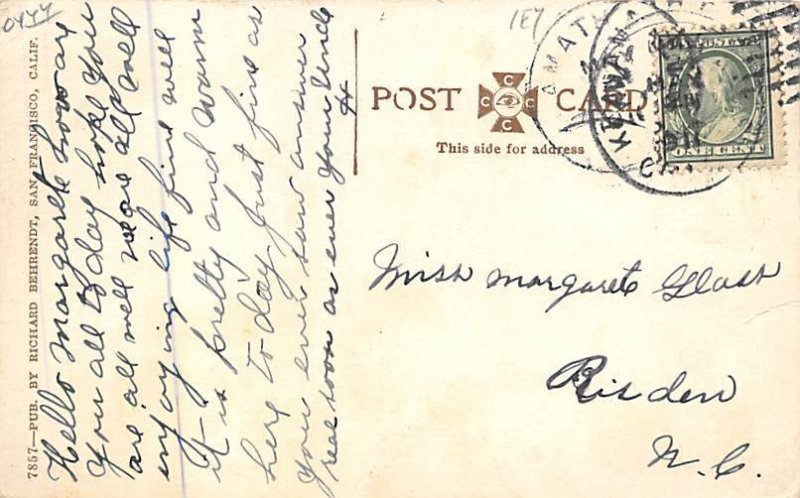 Hello Margaret how are
you all to day hope you
are all well we are all well
enjoying life find well
it is pretty and warm
here to day just fine as
you ever saw answer
real soon as ever your Uncle
H
7857—PUB. BY RICHARD BEHRENDT, SAN FRANCISCO, CALIF.
1E7
POST CARD
C C C C
This side for address
U.S. POSTAGE
ONE CENT
Miss Margarete Glash
Risden
N.C.